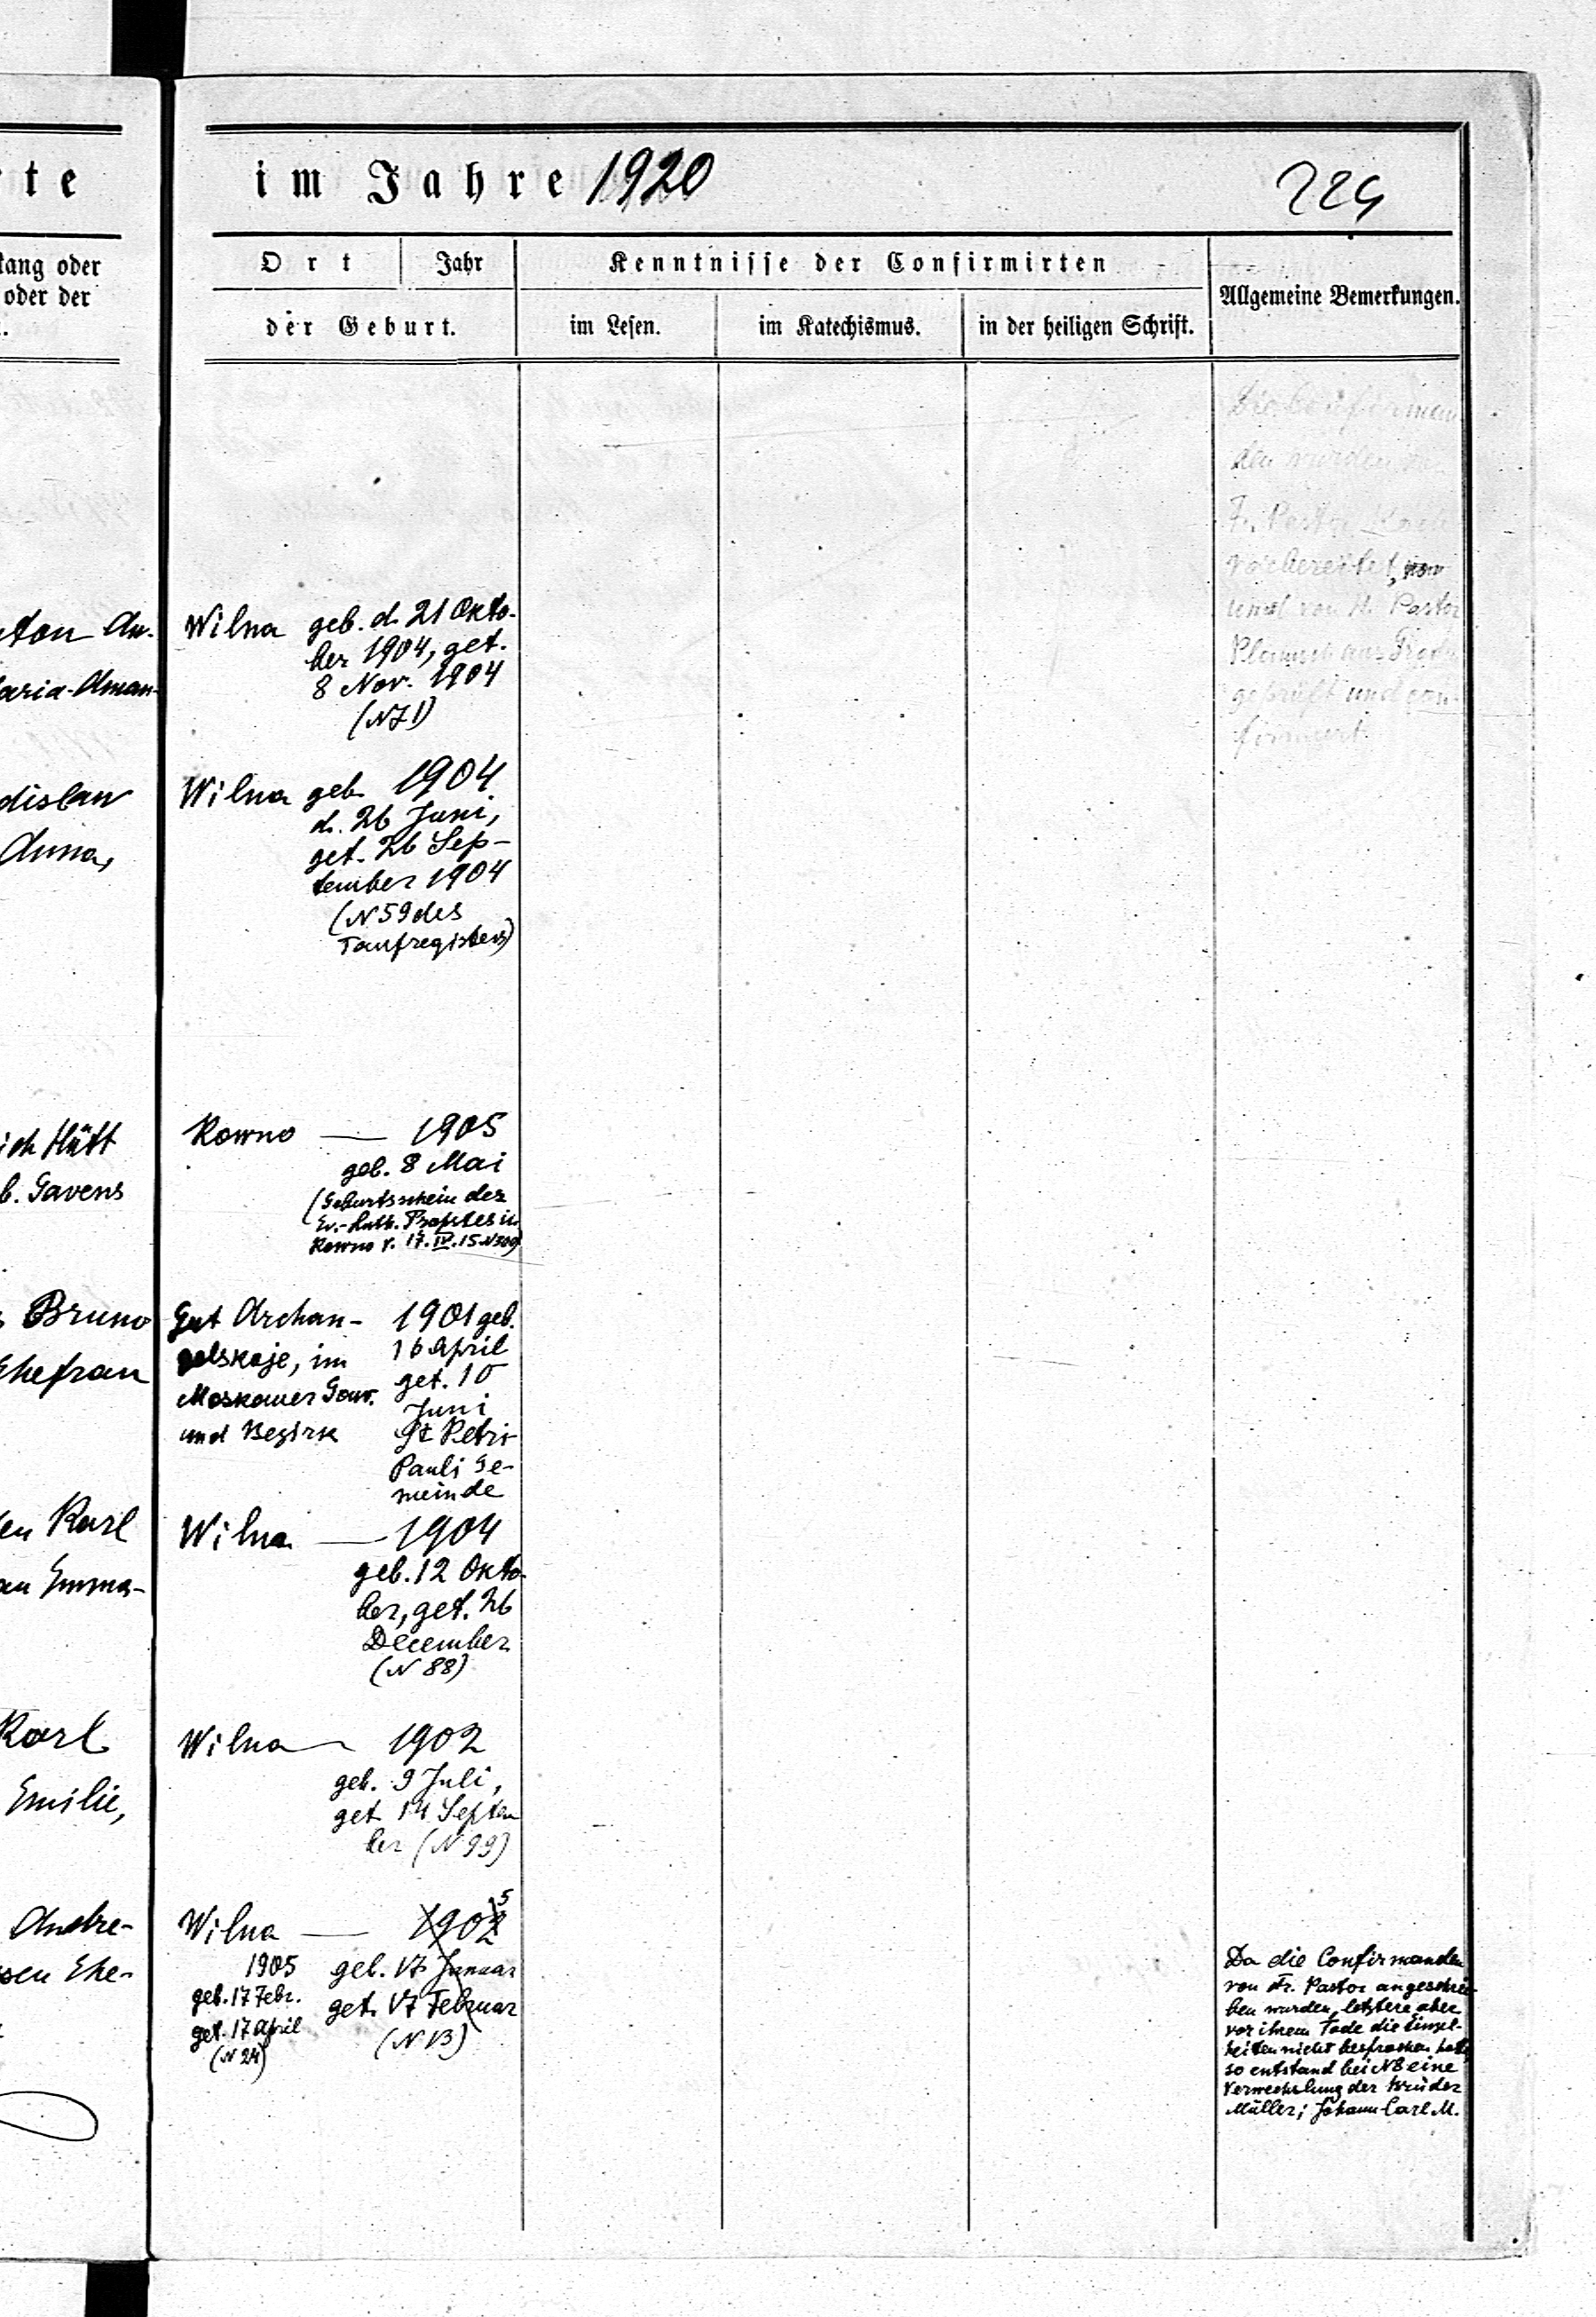 rte im Jahre 1920 224
tang oder
oder der
Ort Jahr
der Geburt.
Kenntnisse der Confirmirten
im Lesen. im Katechismus. in der heiligen Schrift.
Allgemeine Bemerkungen.
Die Confirman
den wurden
Fr. Pastor
vorbereitet,
und von H. Pastor
geprüft und con-
firmiert.
ton An.
aria-Aman-
Wilna geb. d. 21 Okto-
ber 1904, get.
8 Nov. 1904
(N71)
dislaw
Anna,
Wilna geb. 1904
d. 26 Juni,
get. 26 Sep-
tember 1904
(N 59 des
Taufregisters)
ich Hütt
b. Gavens
Kowno — 1905
geb. 8 Mai
(Geburtsschein des
Ev.-Luth. Propstes in
Kowno v. 17.IV.15.N309)
Bruno
Ehefrau
Gut Archan-
gelskoje, im
Moskauer Gouv.
und Bezirk
1901 geb.
16 April
get. 10
Juni
St Petri
Pauli Ge-
meinde
en Karl
au Emma-
Wilna — 1904
geb. 12 Okto-
ber, get. 26
December
(N 88)
Karl
Emilie,
Wilna — 1902
geb. 9 Juli,
get. 14 Septem
ber (N 99)
Andre-
sen Ehe-
Wilna — 1902 5
geb. 17 Januar
get. 17 Februar
(N 13)
1905
geb. 17 Febr.
get. 17 April
(N 24)
Da die Confirmanden
von Fr. Pastor angeschrie-
ben wurden, letztere aber
vor ihrem Tode die Einzel-
heiten nicht besprochen hatte,
so entstand bei N8 eine
Verwechslung der Brüder
Müller; Johann-Carl M.